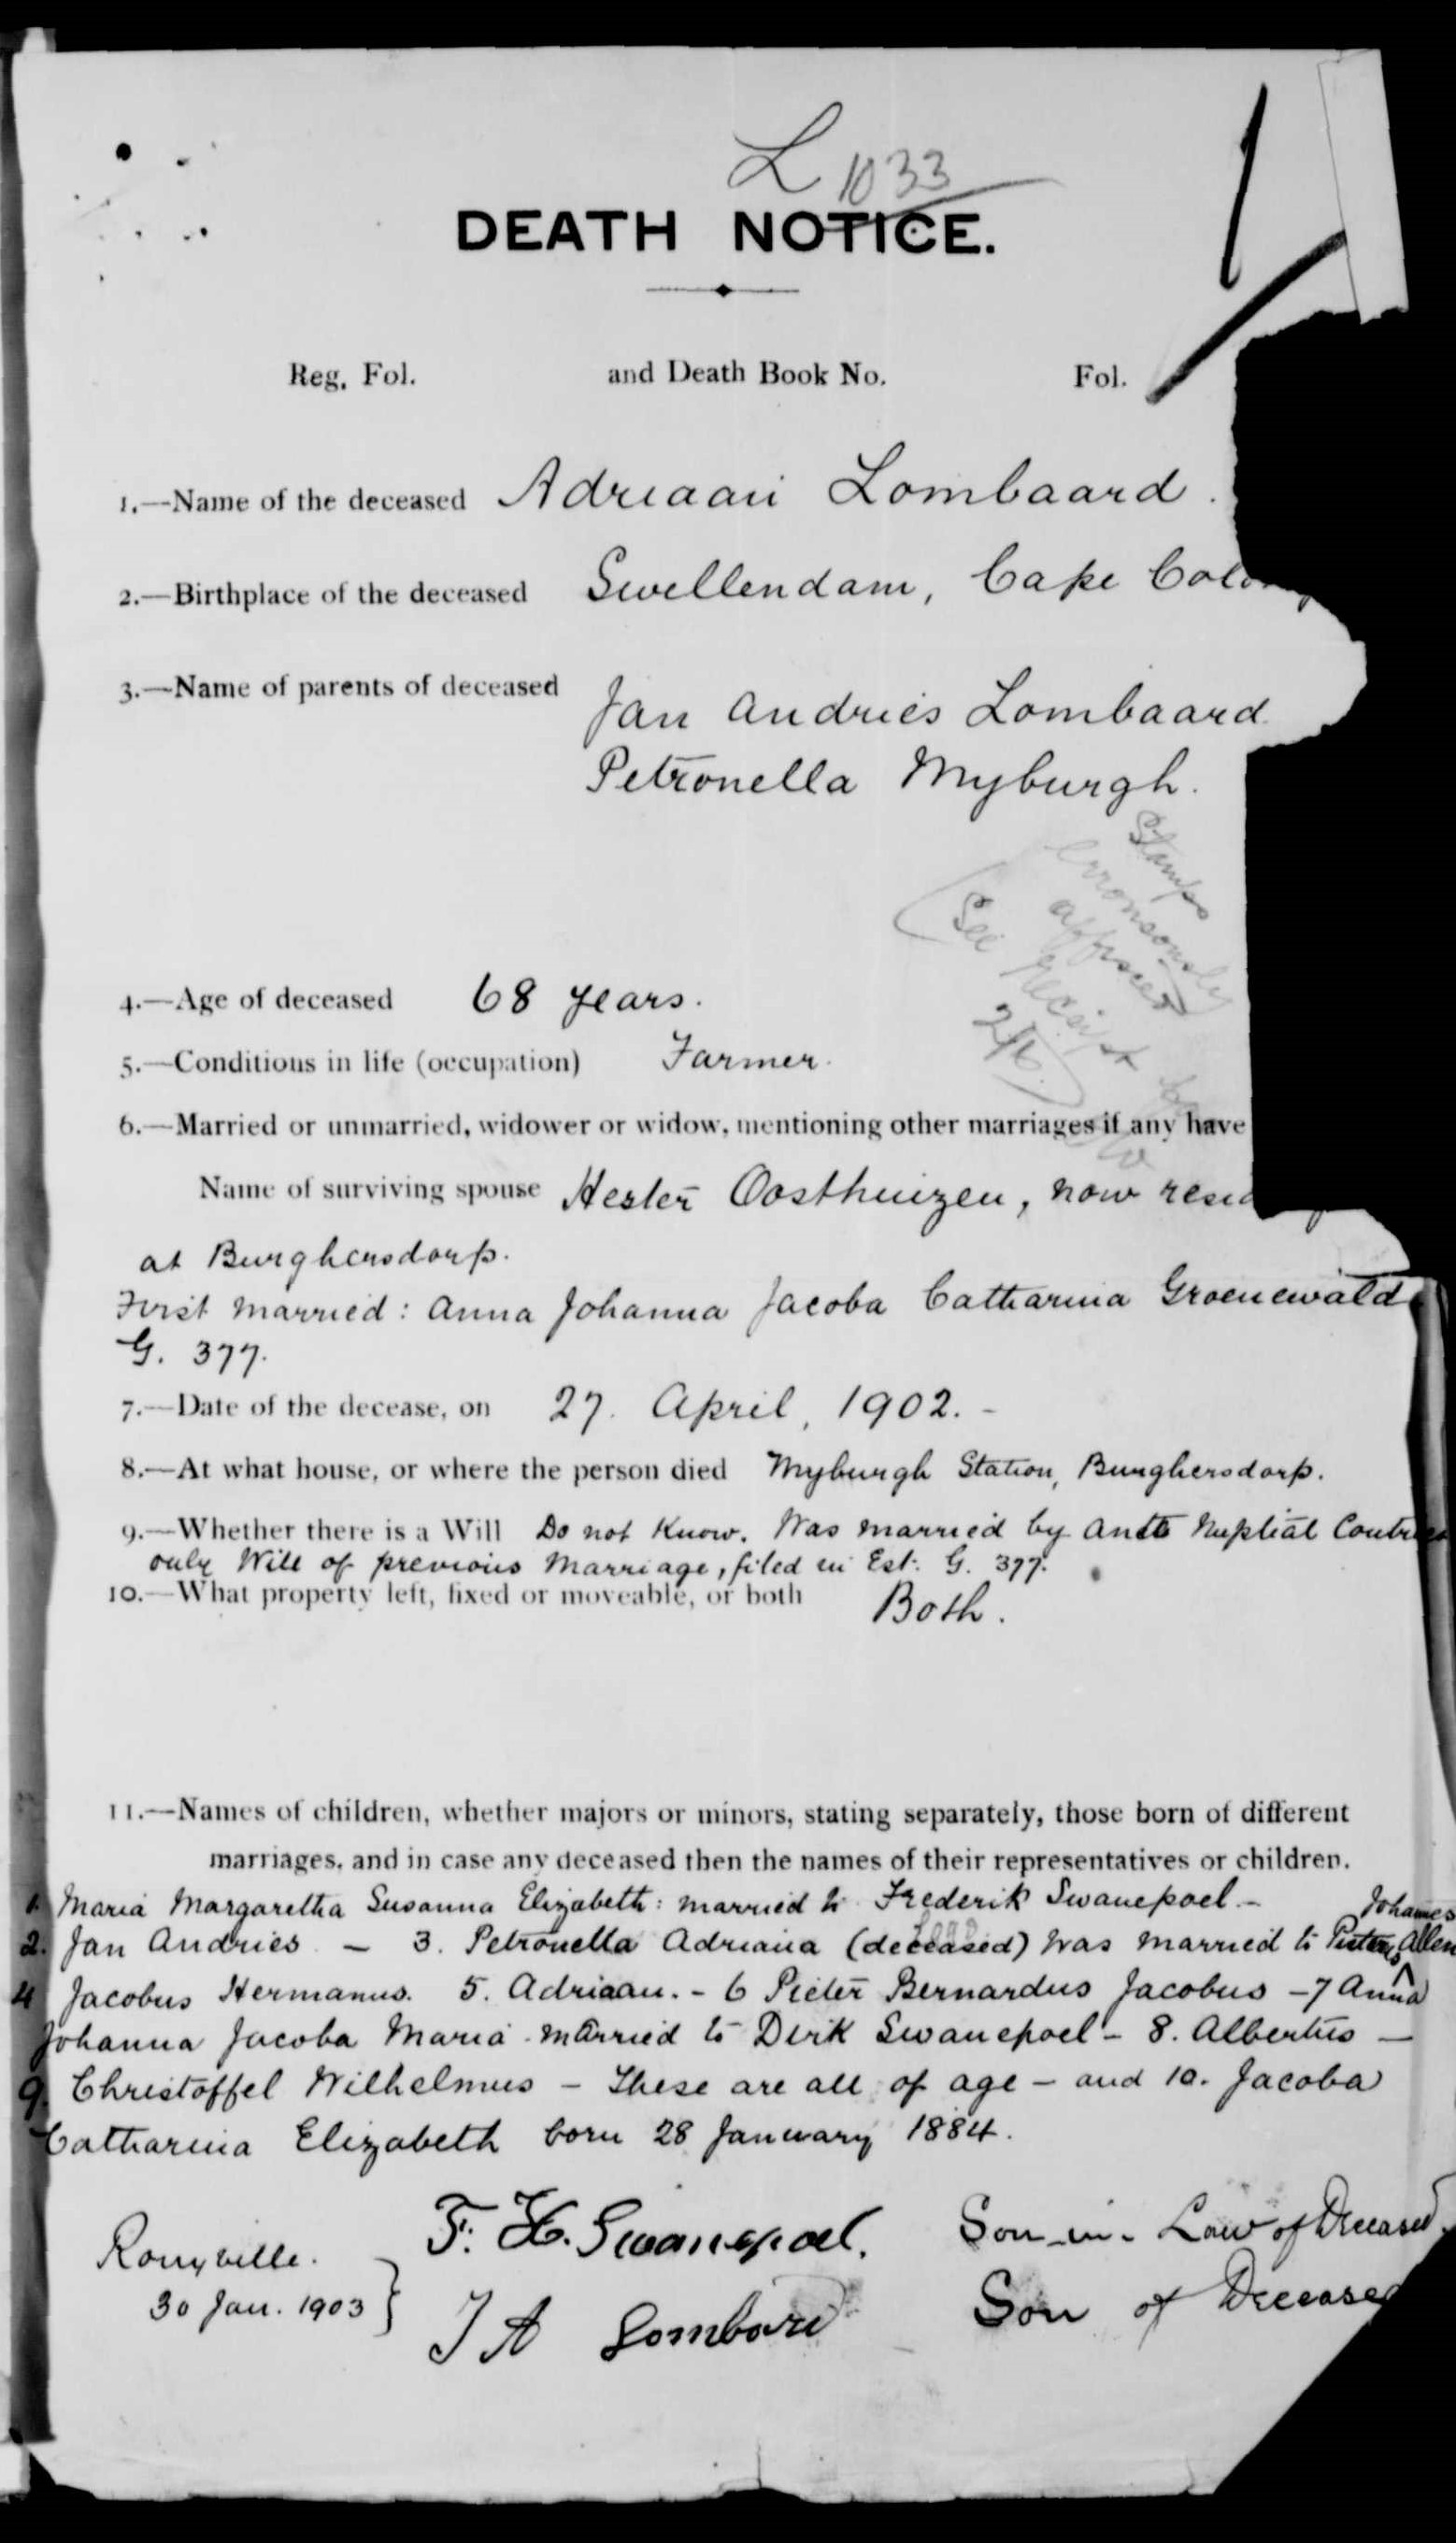 L 1033
DEATH NOTICE.
Reg. Fol. and Death Book No. Fol.
1.—Name of the deceased Adriaan Lombaard.
2.—Birthplace of the deceased Swellendam, Cape
3.—Name of parents of deceased
Jan Andries Lombaard
Petronella Myburgh.
Stamps
erronsously
affixed
(See receipt
4.—Age of deceased 68 years.
5.—Conditions in life (occupation) Farmer.
6.—Married or unmarried, widower or widow, mentioning other marriages if any have
Name of surviving spouse Hester Oosthuizen, now
at Burghersdorp.
First married: Anna Johanna Jacoba Catharina Groenewald
G. 377.
7.—Date of the decease, on 27. April, 1902. -
8.—At what house, or where the person died Myburgh Station, Burghersdorp.
9.—Whether there is a Will Do not know. Was married by Ante Nuptial
only Will of previous marriage, filed in Est. G. 377.
10.—What property left, fixed or moveable, or both Both.
11.—Names of children, whether majors or minors, stating separately, those born of different
marriages, and in case any deceased then the names of their representatives or children.
1. Maria Margaretha Susanna Elizabeth: married to Frederik Swanepoel. - Johannes
2. Jan Andries - 3. Petronella Adriana (deceased) was married to Allen
4 Jacobus Hermanus. 5. Adriaan. - 6 Pieter Bernardus Jacobus - 7 Anna
Johanna Jacoba Maria married to Dirk Swanepoel - 8. Albertus -
9. Christoffel Wilhelmus - These are all of age - and 10. Jacoba
Catharina Elizabeth born 28 January 1884.
F. H. Swanepoel. Son-in-Law of Deceased.
Rouxville.
30 Jan. 1903 }
J A Lombard Son of Deceased